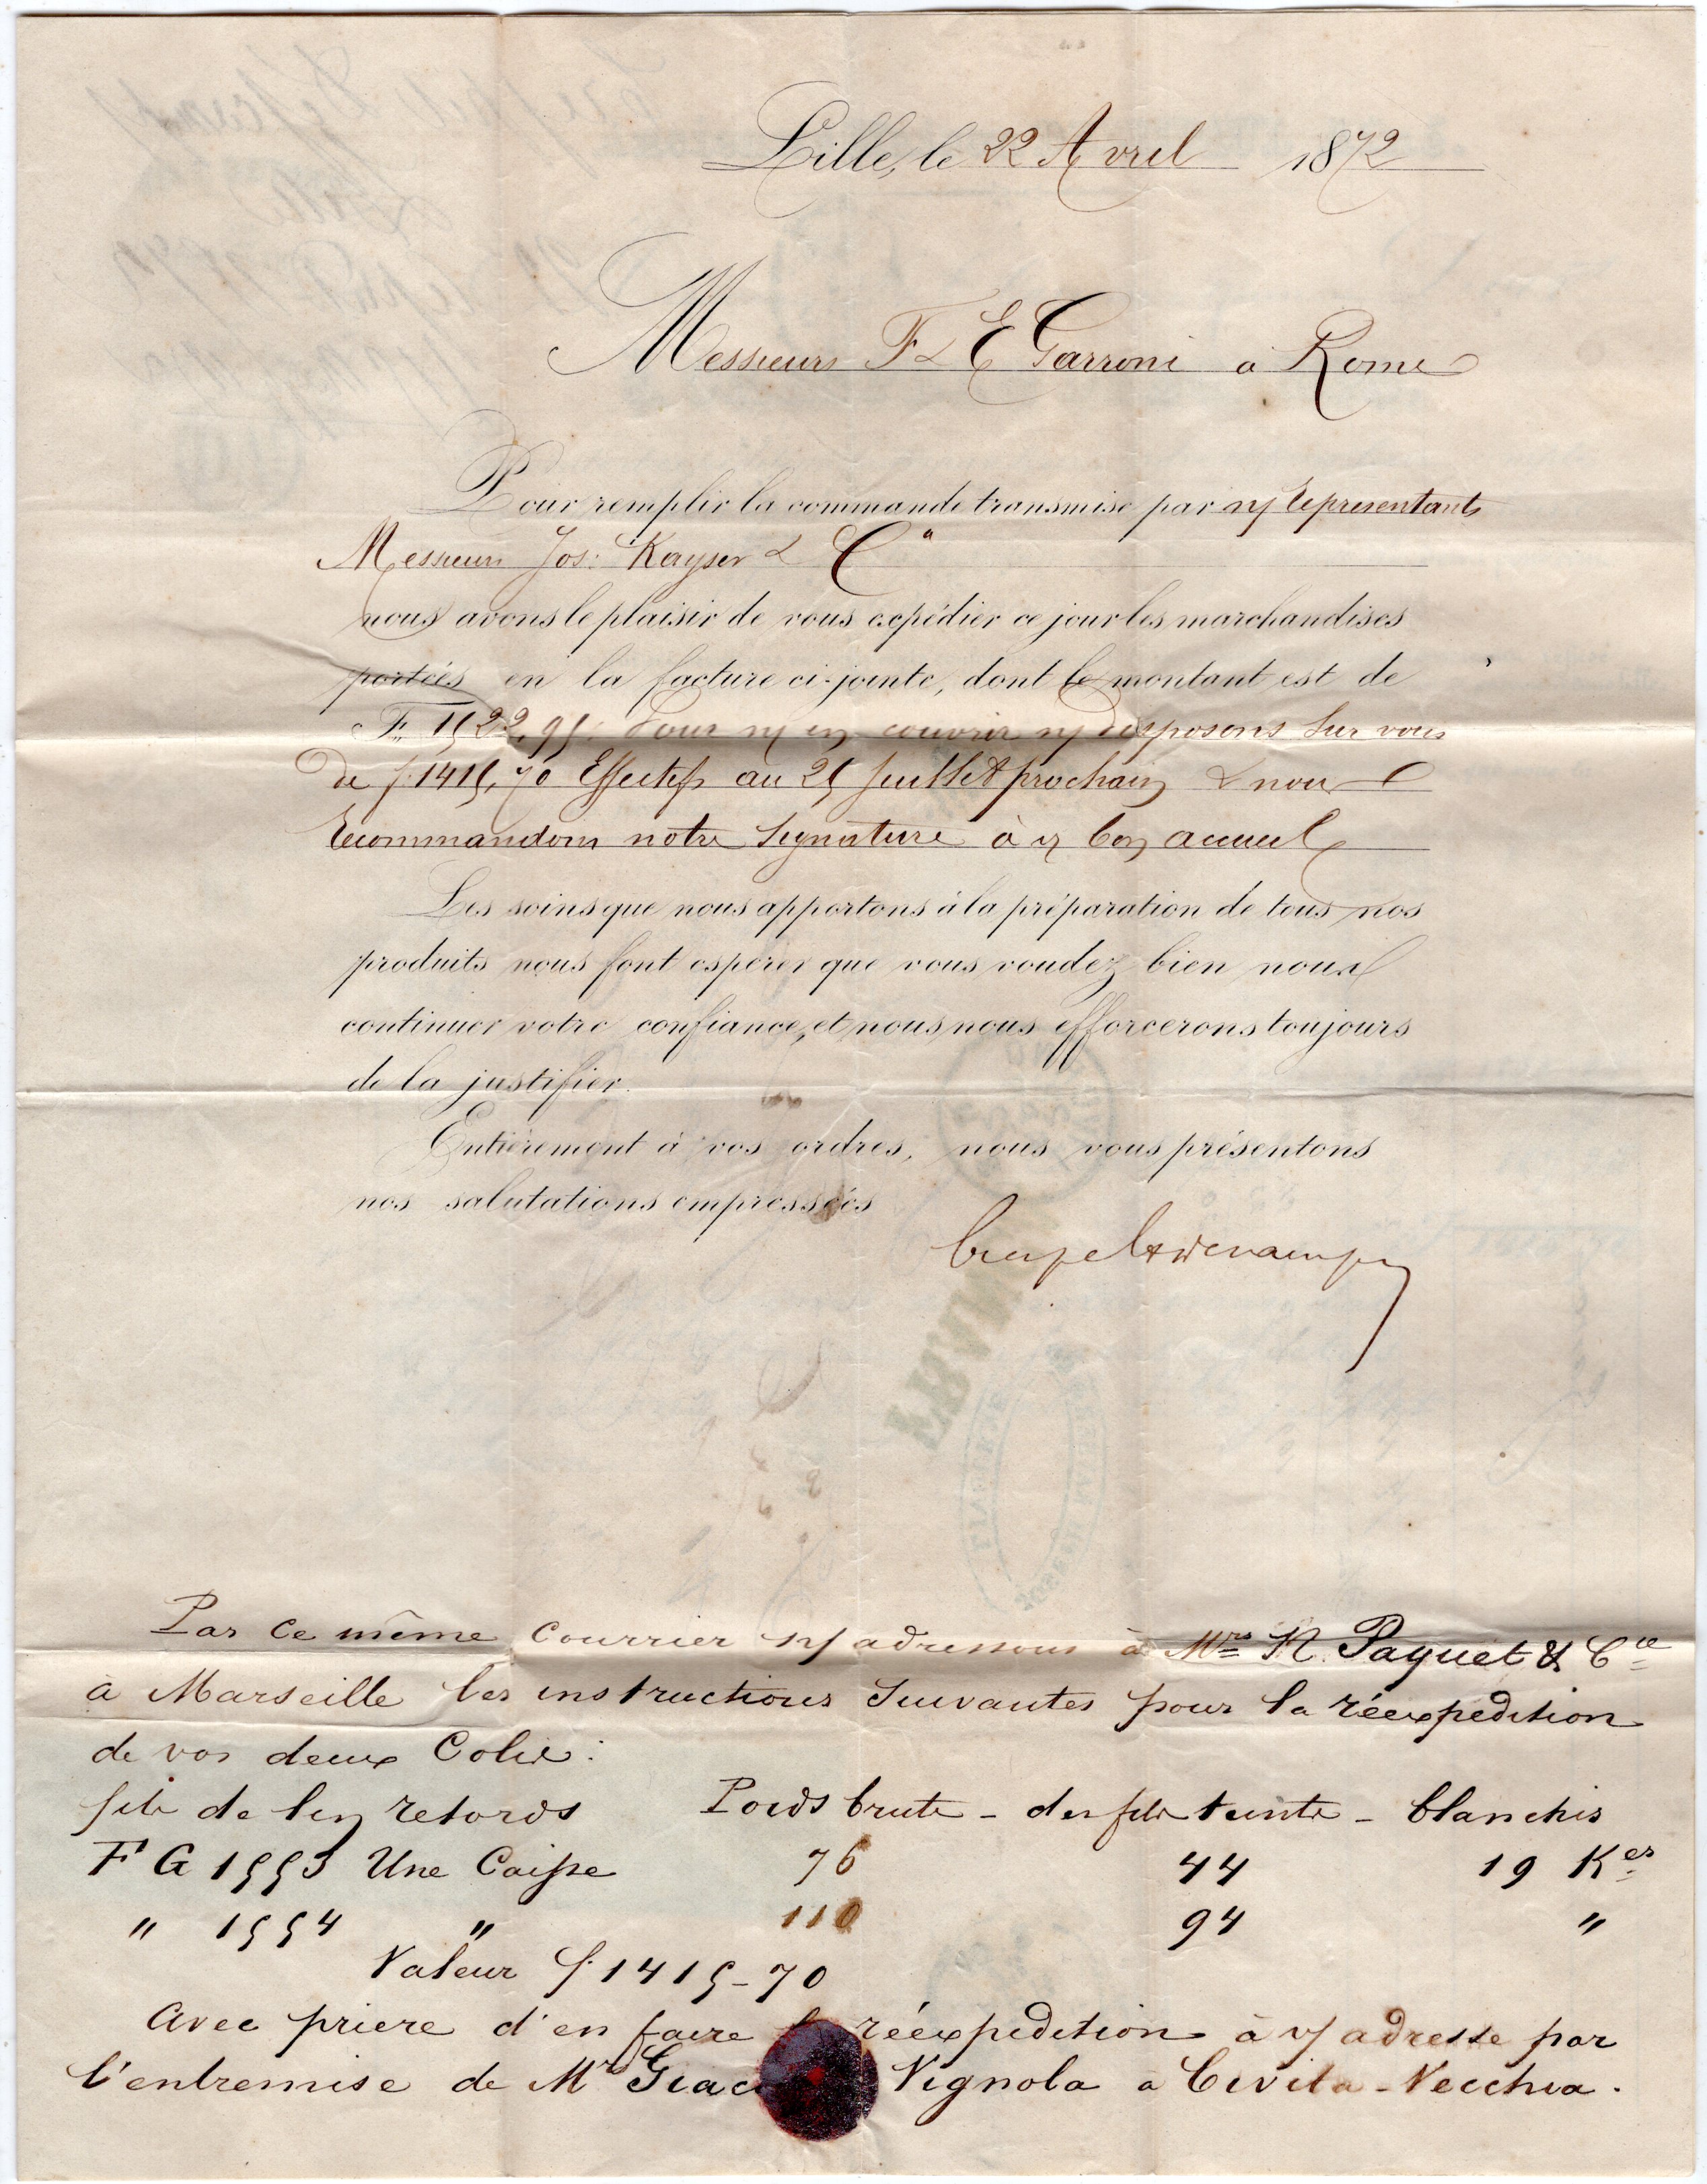 Lille, le 22 Avril 1872
Messieurs F & E Garroni à Rome
Pour remplir la commande transmise par n/ représentants
Messieurs Jos: Kayser & Cº
nous avons le plaisir de vous expédier ce jour les marchandises
portées en la facture ci-jointe, dont le montant est de
F. 1522,95. Pour n/ en couvrir n/ disposons sur vous
de f. 1415,70 Effectifs au 25 Juillet prochain & nous
recommandons notre signature à v/ bon accueil
Les soins que nous apportons à la préparation de tous nos
produits nous font espérer que vous voudez bien nous
continuer votre confiance, et nous nous efforcerons toujours
de la justifier.
Entièrement à vos ordres, nous vous présentons
nos salutations empressées
Par ce même Courrier n/ adressons à Mrs N. Paquet & Cie
à Marseille les instructions suivantes pour la réexpédition
de vos deux Colis:
fils de lin retors Poids brute - des fils teints - blanchis
F G 1553 Une Caisse 76 44 19 Kos
" 1554 " 110 94 "
Valeur f. 1415-70
Avec prière d'en faire réexpédition à v/ adresse par
l'entremise de Mr Vignola à Civita-Vecchia.